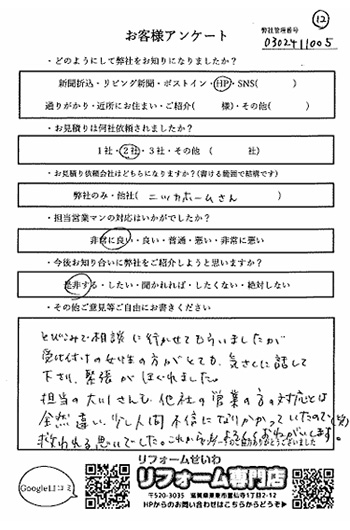 ⑫
お客様アンケート
弊社管理番号
0302411005
・どのようにして弊社をお知りになりましたか？
新聞折込・リビング新聞・ポストイン・HP・SNS(　　　)
通りがかり・近所にお住まい・ご紹介(　　様)・その他(　　)
・お見積りは何社依頼されましたか？
1社・2社・3社・その他（　　　社）
・お見積り依頼会社はどちらになりますか？(書ける範囲で結構です)
弊社のみ・他社(　ニッカホームさん　)
・担当営業マンの対応はいかがでしたか？
非常に良い・良い・普通・悪い・非常に悪い
・今後お知り合いに弊社をご紹介しようと思いますか？
是非する・したい・聞かれれば・したくない・絶対しない
・その他ご意見等ご自由にお書きください
とびこみで相談に行かせてもらいましたが
受け付けの女性の方がとても、気さくに話して
下さり、緊張がほぐれました。
担当の大川さんも、他社の営業の方の対応とは
全然違い、少し人間不信になりかかっていたので(笑)
救われる思いでした。これからもよろしくおねがいします。
ご協力ありがとうございました
Google口コミ
リフォームせいわ
リフォーム専門店
〒520-3035 滋賀県栗東市霊仙寺1丁目2-12
HPからのお問い合わせはこちらからどうぞ▶